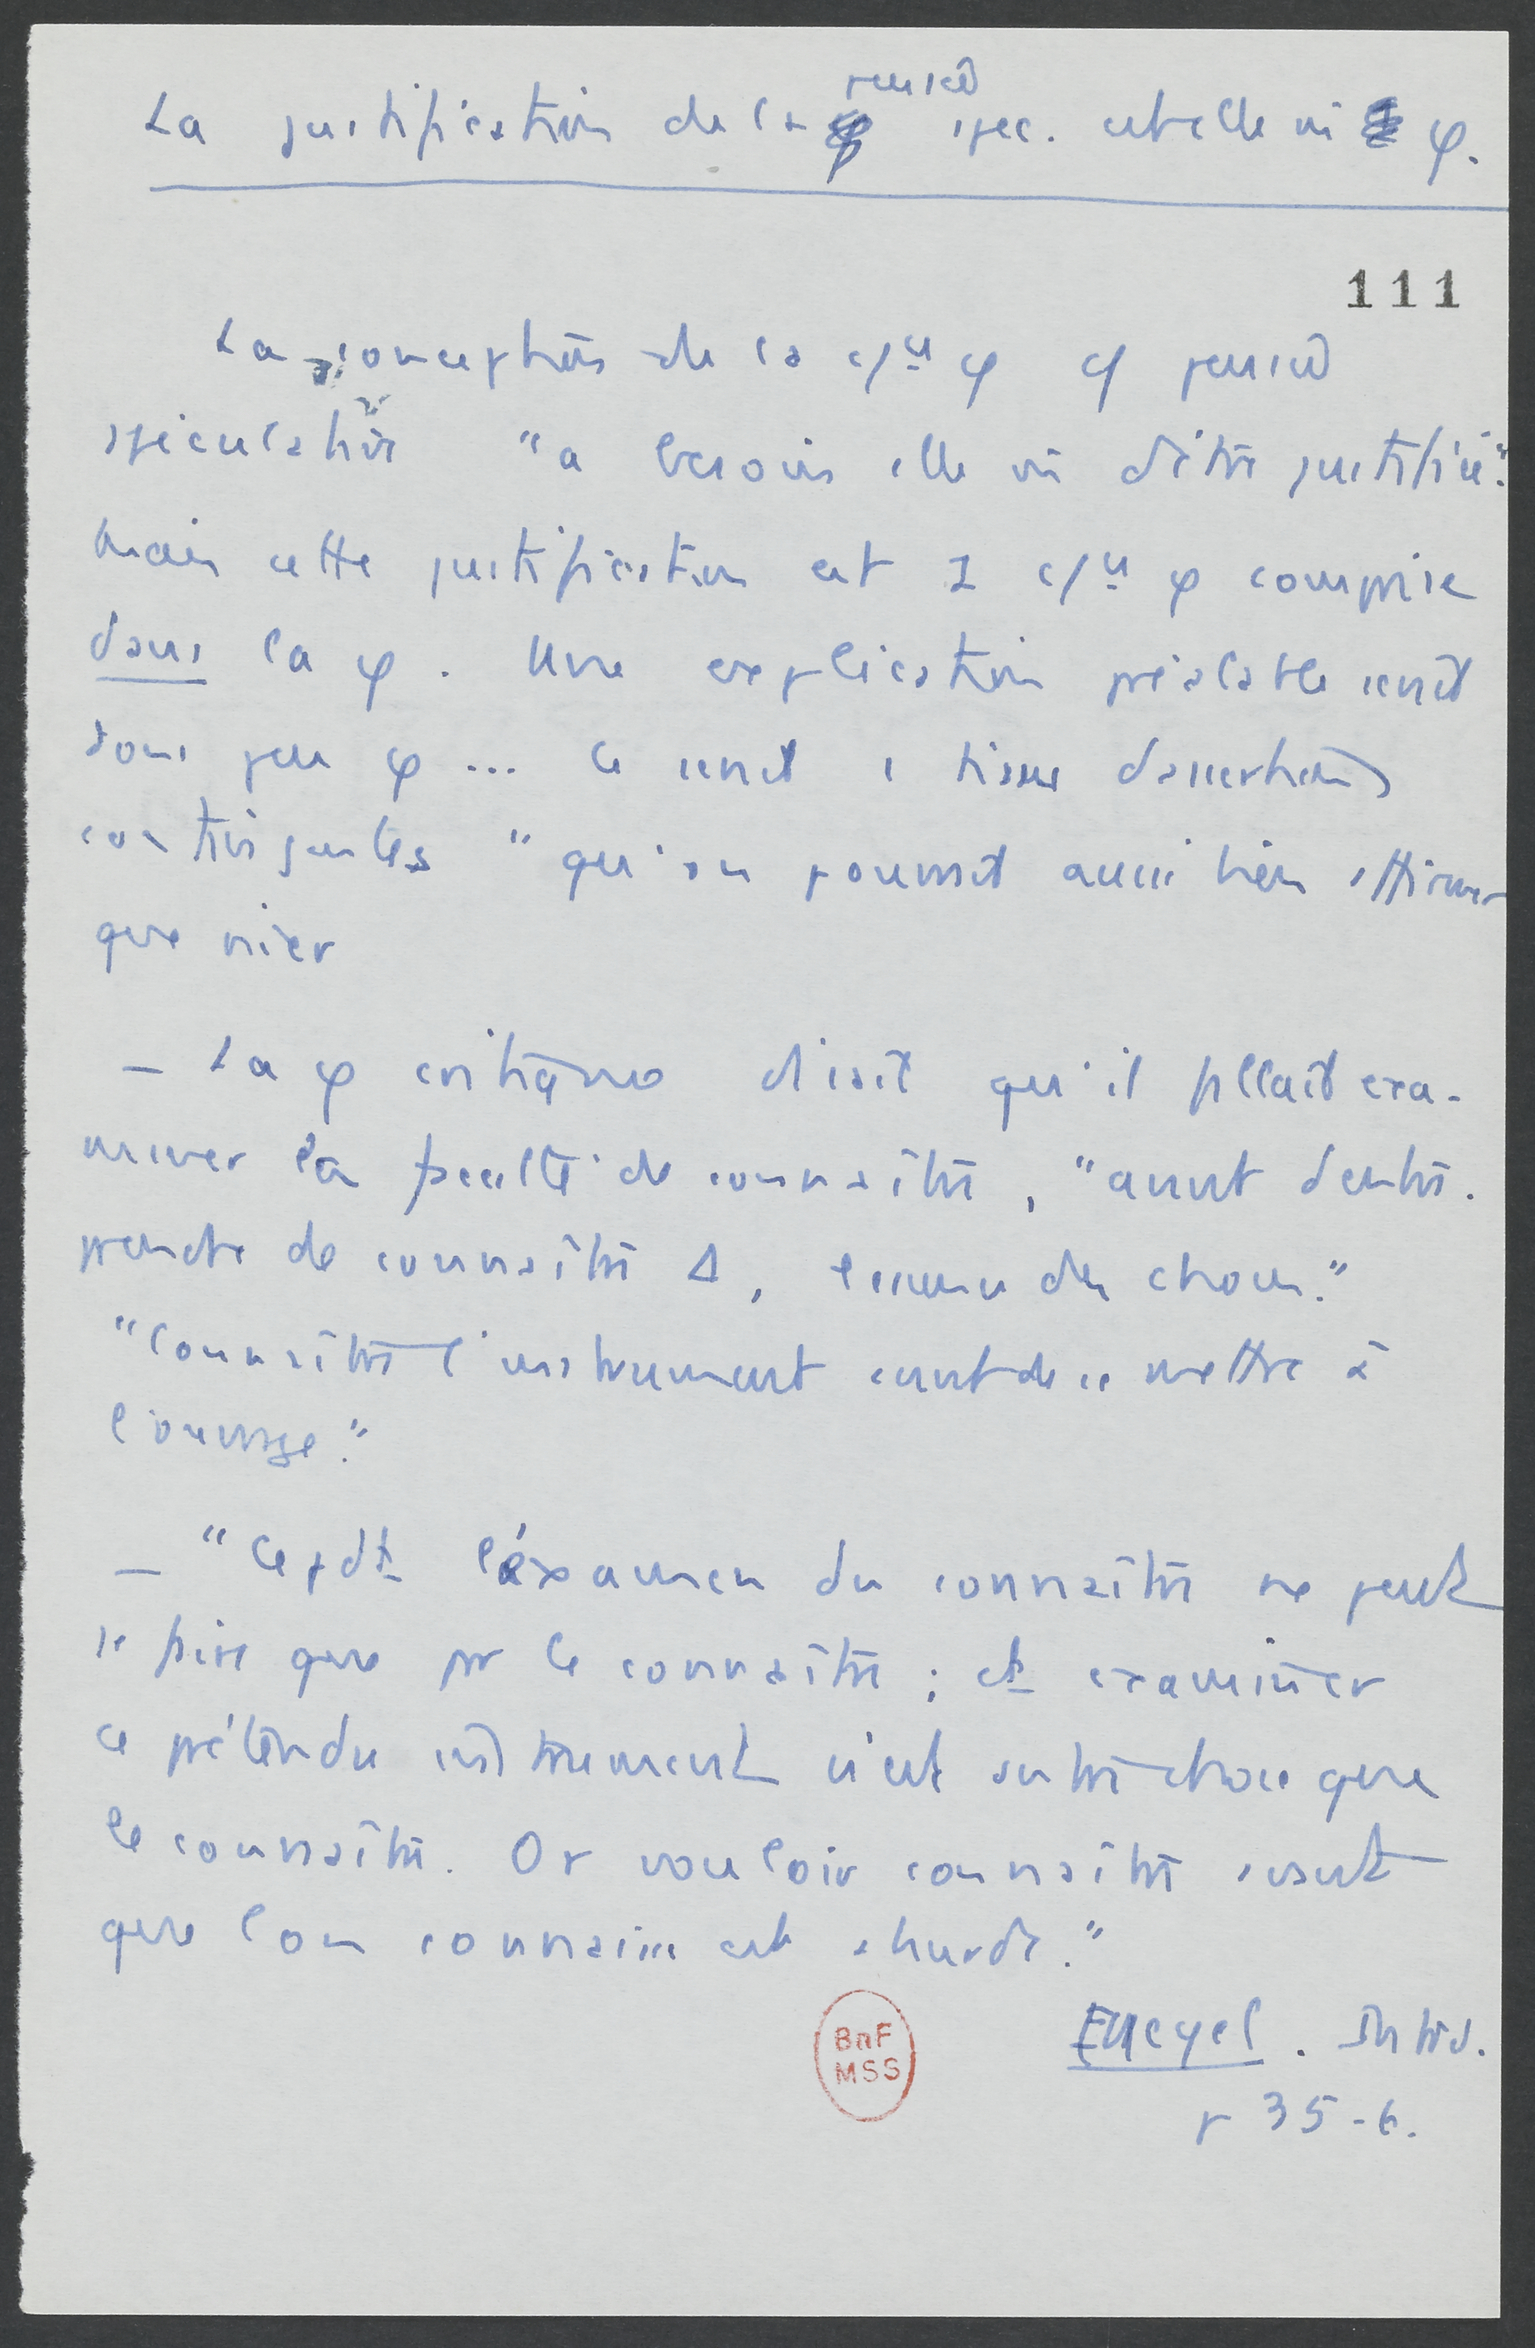 La justification de la pensée spec. est elle mi φ.
111
La conception de la c/ce φ cf pensée
spéculative "a besoin elle mê d'être justifiée".
Mais cette justification est 1 c/ce φ comprise
dans la φ. Une explication préalable serait
donc peu φ... Ce serait 1 tissu d'assertions
contingentes "qu'on pourrait aussi bien affirmer
que nier
– La φ critique disait qu'il fallait exa-
miner la faculté de connaître, "avant d'entre-
prendre de connaître Δ, l'essence des choses."
"Connaître l'instrument avant de se mettre à
l'ouvrage."
– "Cepdt l'examen du connaître ne peut
se faire que par le connaître ; et examiner
ce prétendu instrument n'est autre chose que
le connaître. Or vouloir connaître avant
que l'on connaisse est absurde."
BnF
MSS
Hegel. Intro.
p 35-6.